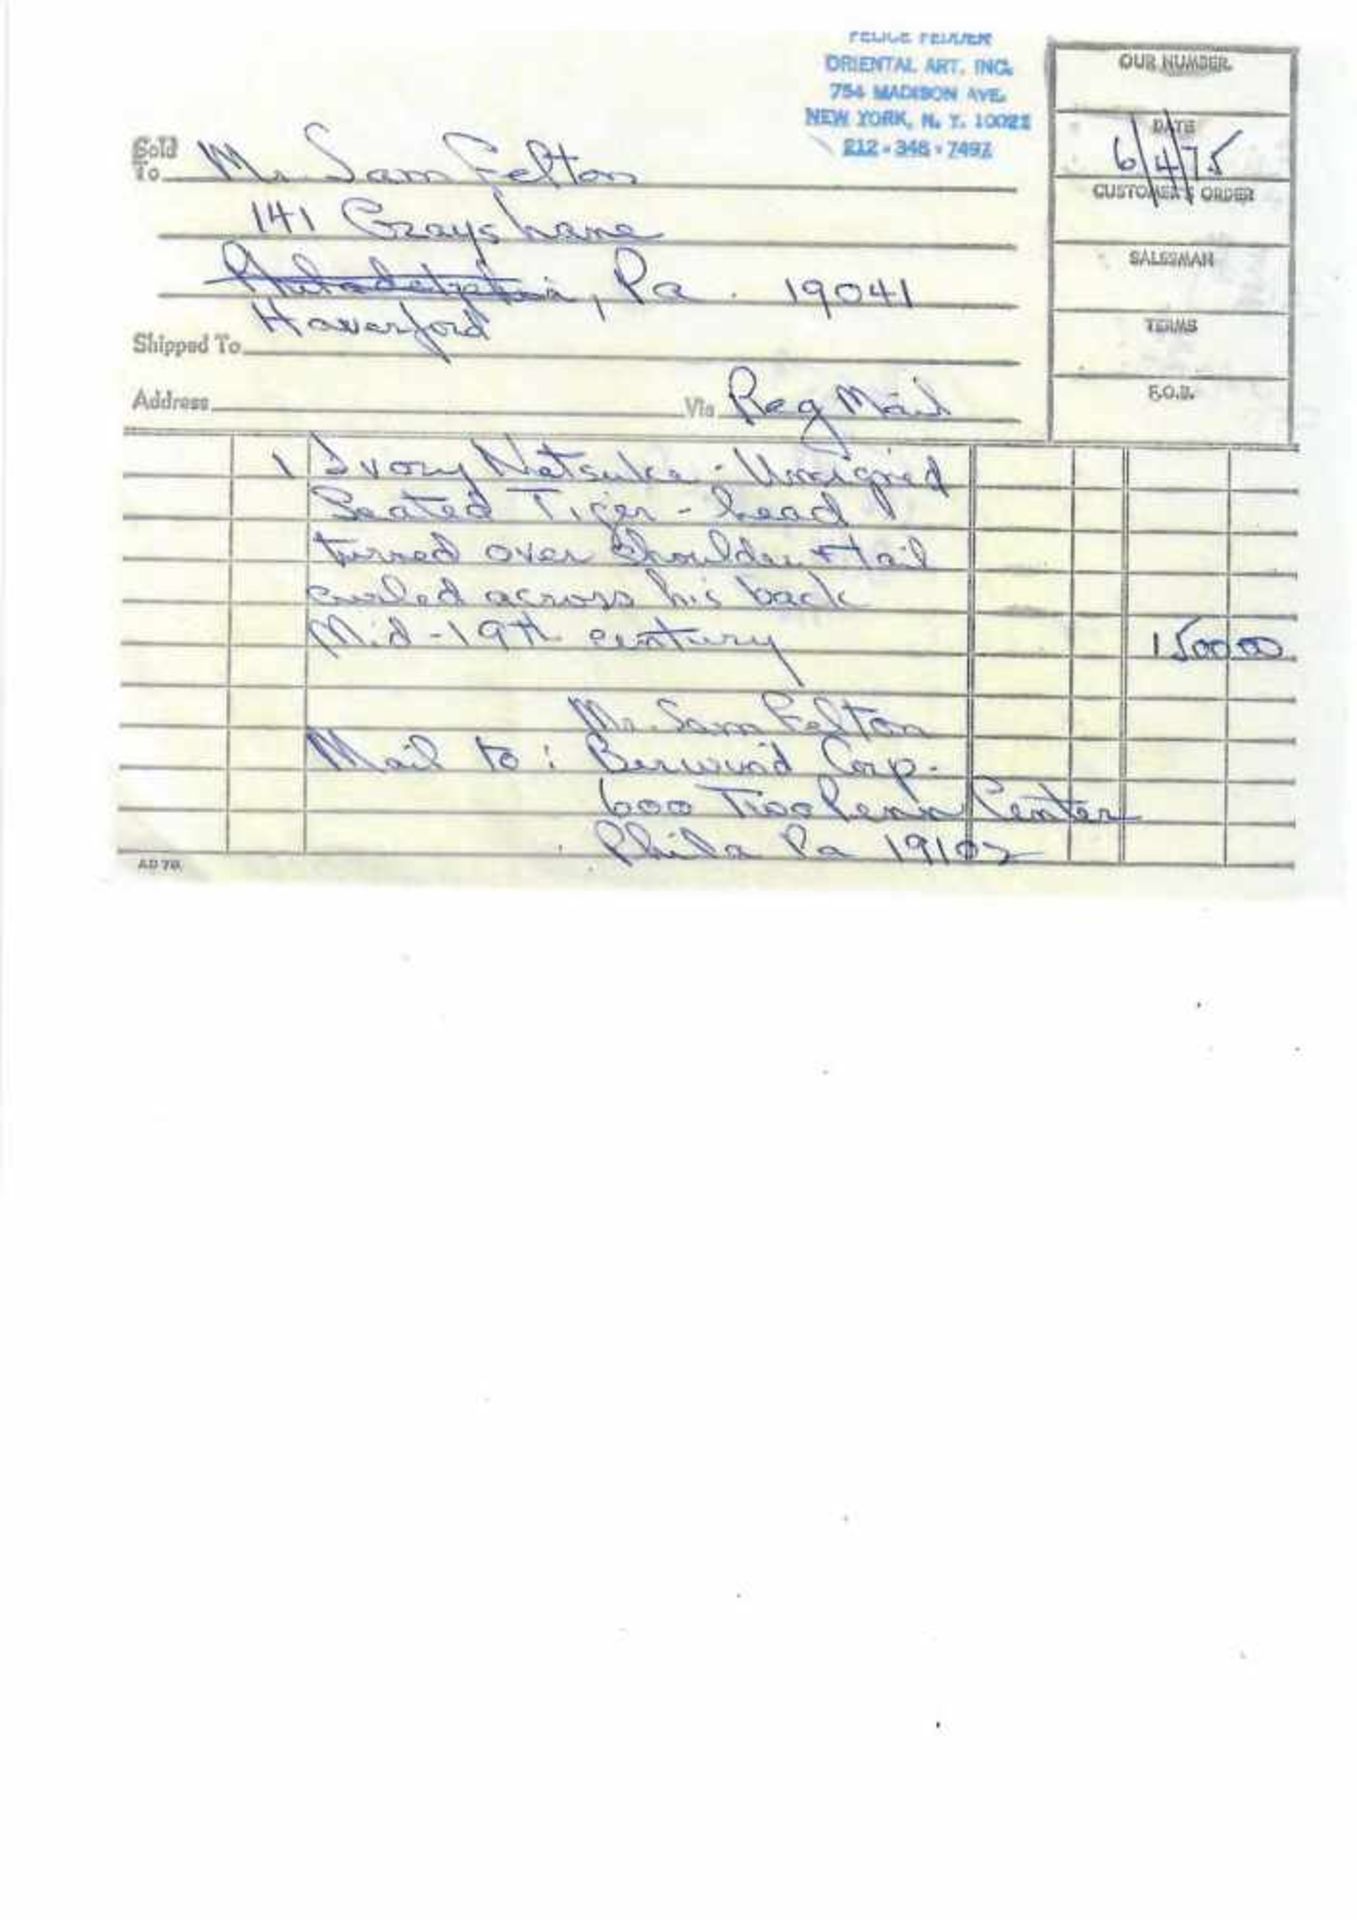 ORIENTAL ART, INC.
754 MADISON AVE.
NEW YORK, N. Y. 10021
212 - 348 - 7492
OUR NUMBER
DATE
6/4/75
CUSTOMER'S ORDER
SALESMAN
TERMS
F.O.B.
Sold To Mr Sam Felton
141 Grays Lane
Philadelphia, Pa. 19041
Haverford
Shipped To
Address Via Reg Mail
1 Ivory Netsuke - Unsigned
Seated Tiger - head
turned over shoulder + tail
curled across his back
Mid-19th century 1500 00
Mr. Sam Felton
Mail to: Berwind Corp.
600 Two Penn Center
Phila Pa 19102
AD 7B